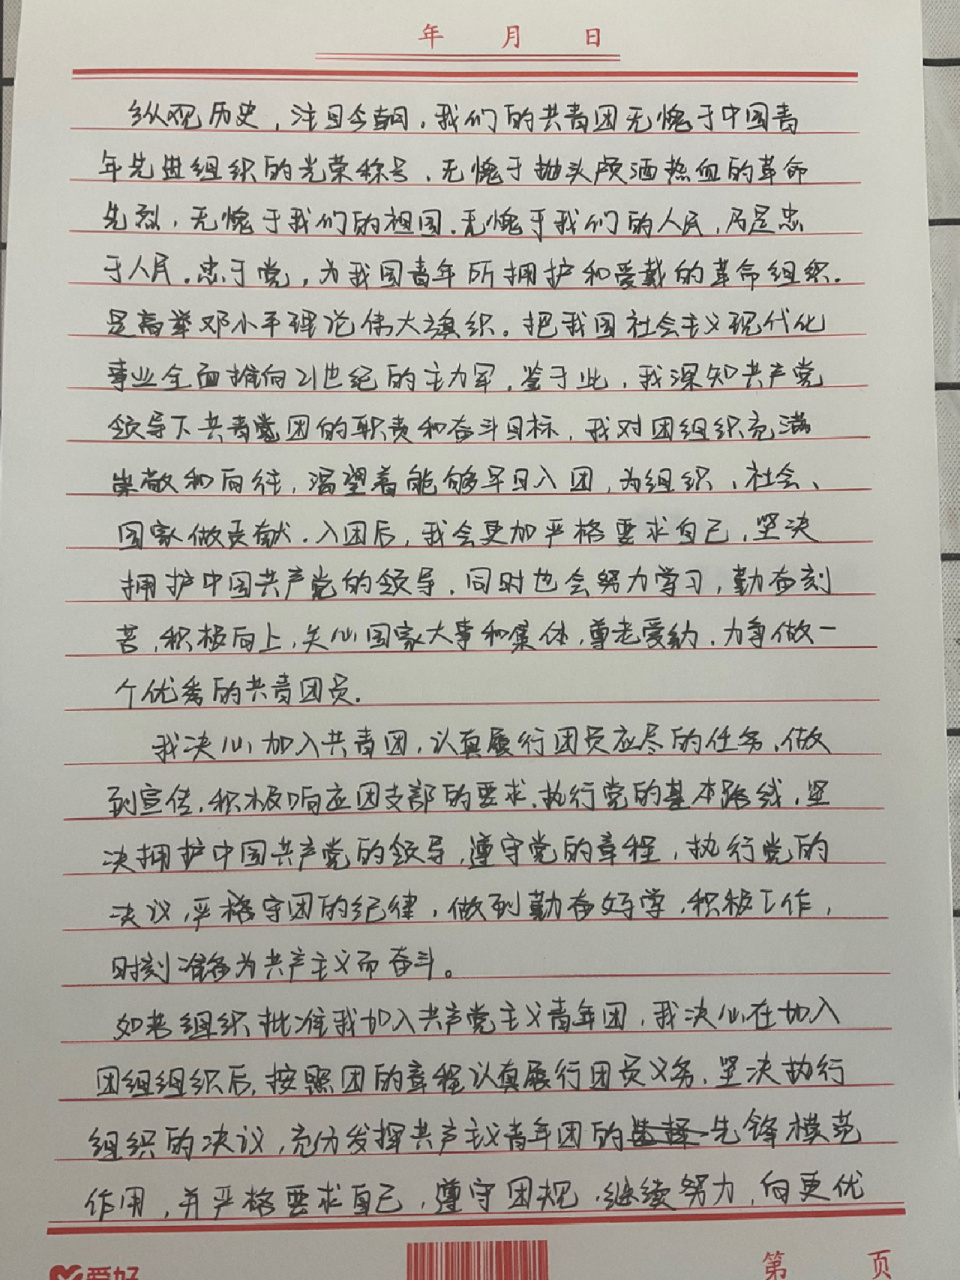 年 月 日
纵观历史，注目今朝，我们的共青团无愧于中国青
年先进组织的光荣称号，无愧于抛头颅洒热血的革命
先烈，无愧于我们的祖国，无愧于我们的人民，乃是忠
于人民，忠于党，为我国青年所拥护和爱戴的革命组织.
是高举邓小平理论伟大旗织。把我国社会主义现代化
事业全面推向21世纪的主力军，鉴于此，我深知共产党
领导下共青团的职责和奋斗目标，我对团组织充满
崇敬和向往，渴望着能够早日入团，为组织、社会、
国家做贡献.入团后，我会更加严格要求自己，坚决
拥护中国共产党的领导，同时也会努力学习，勤奋刻
苦，积极向上，关心国家大事和集体，尊老爱幼，力争做一
个优秀的共青团员.
我决心加入共青团，认真履行团员应尽的任务，做
到宣传，积极响应团支部的要求，执行党的基本路线，坚
决拥护中国共产党的领导，遵守党的章程，执行党的
决议，严格守团的纪律，做到勤奋好学，积极工作，
时刻准备为共产主义而奋斗。
如老组织批准我加入共产党主义青年团，我决心在加入
团组组织后，按照团的章程认真履行团员义务，坚决执行
组织的决议，充分发挥共产主义青年团的先锋模范
作用，并严格要求自己，遵守团规，继续努力，向更优
爱好
第 页